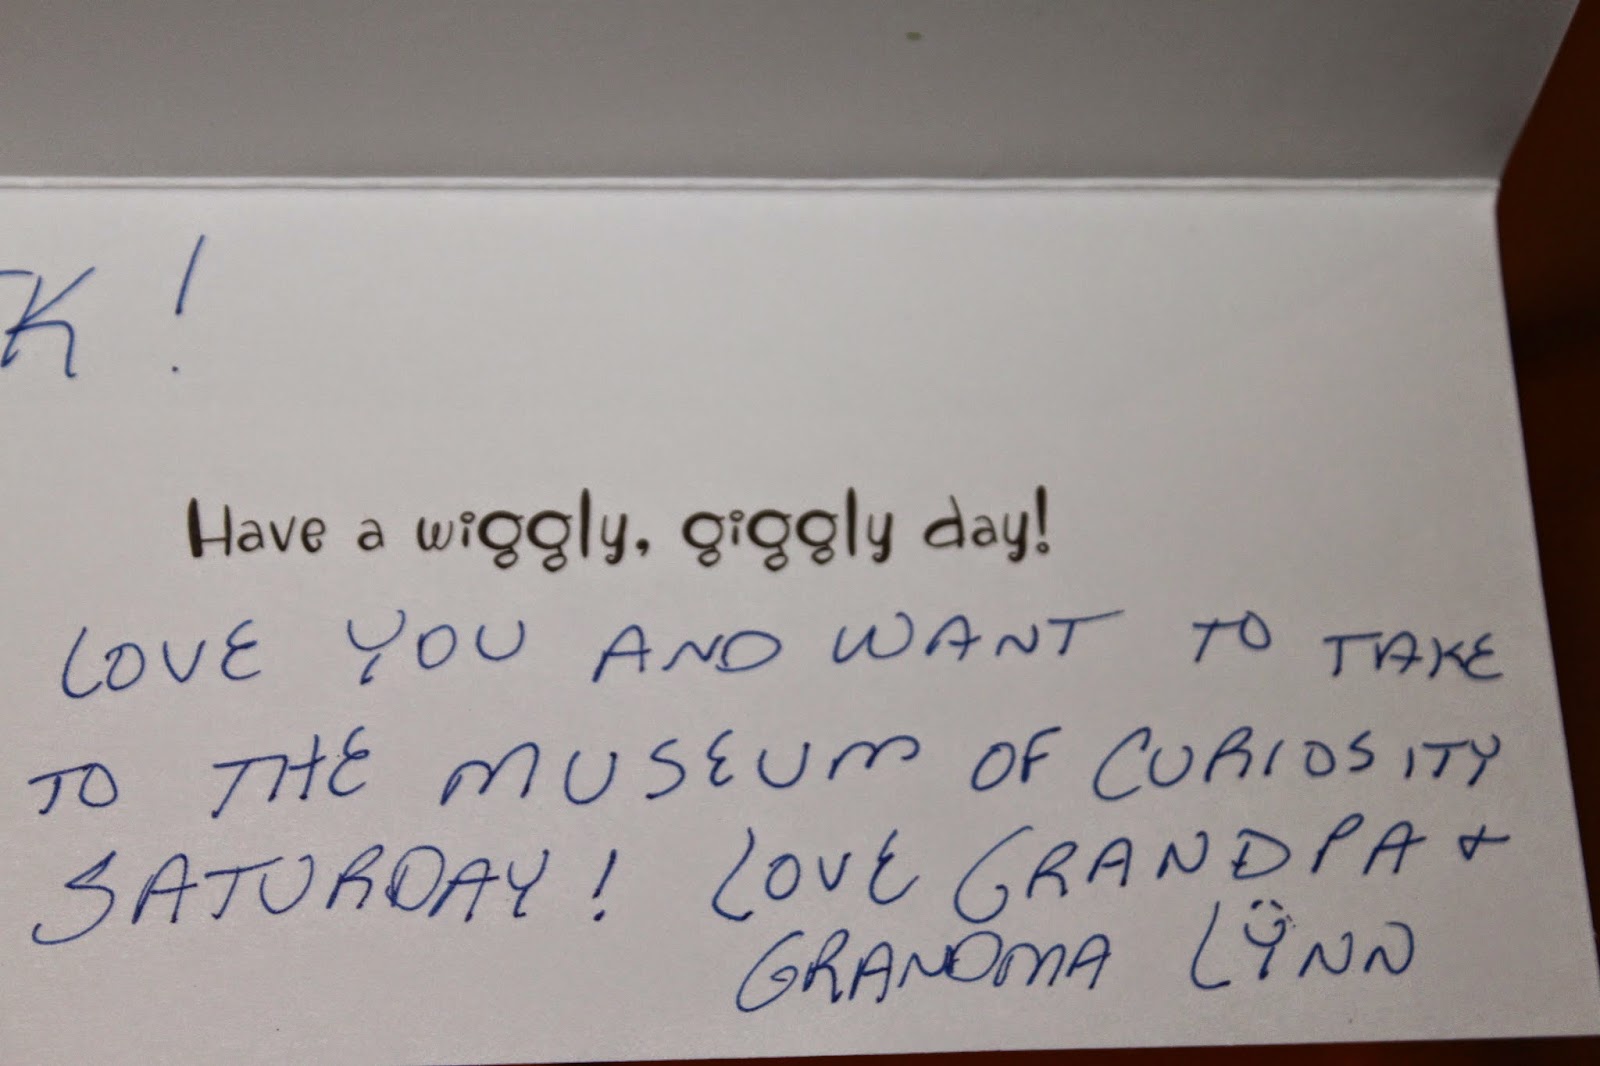 K!
Have a wiggly, giggly day!
LOVE YOU AND WANT TO TAKE
TO THE MUSEUM OF CURIOSITY
SATURDAY! LOVE GRANDPA +
GRANDMA LYNN